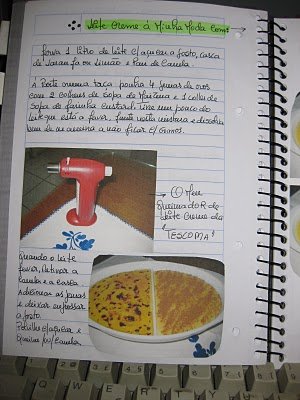 Leite Creme à Minha Moda
Ferva 1 litro de leite c/ açúcar a gosto, casca
de laranja ou limão e Pau de Canela.
À Parte numa taça ponha 4 gemas de ovos
com 2 colheres de sopa de Maizena e 1 colher
Sopa de farinha custard. Tire um pouco do
leite que está a ferver junte nesta mistura e dissolva
bem de maneira a não ficar c/ Grumos.
O Meu
Queimador de
Leite Creme da
"TESCOMA"
Quando o leite
ferver, retirar a
canela e a casca
Adicionar as gemas
e deixar engrossar
a gosto.
Polvilhe c/ açúcar e
Queime ou/ Canela.
Q W E R T Y